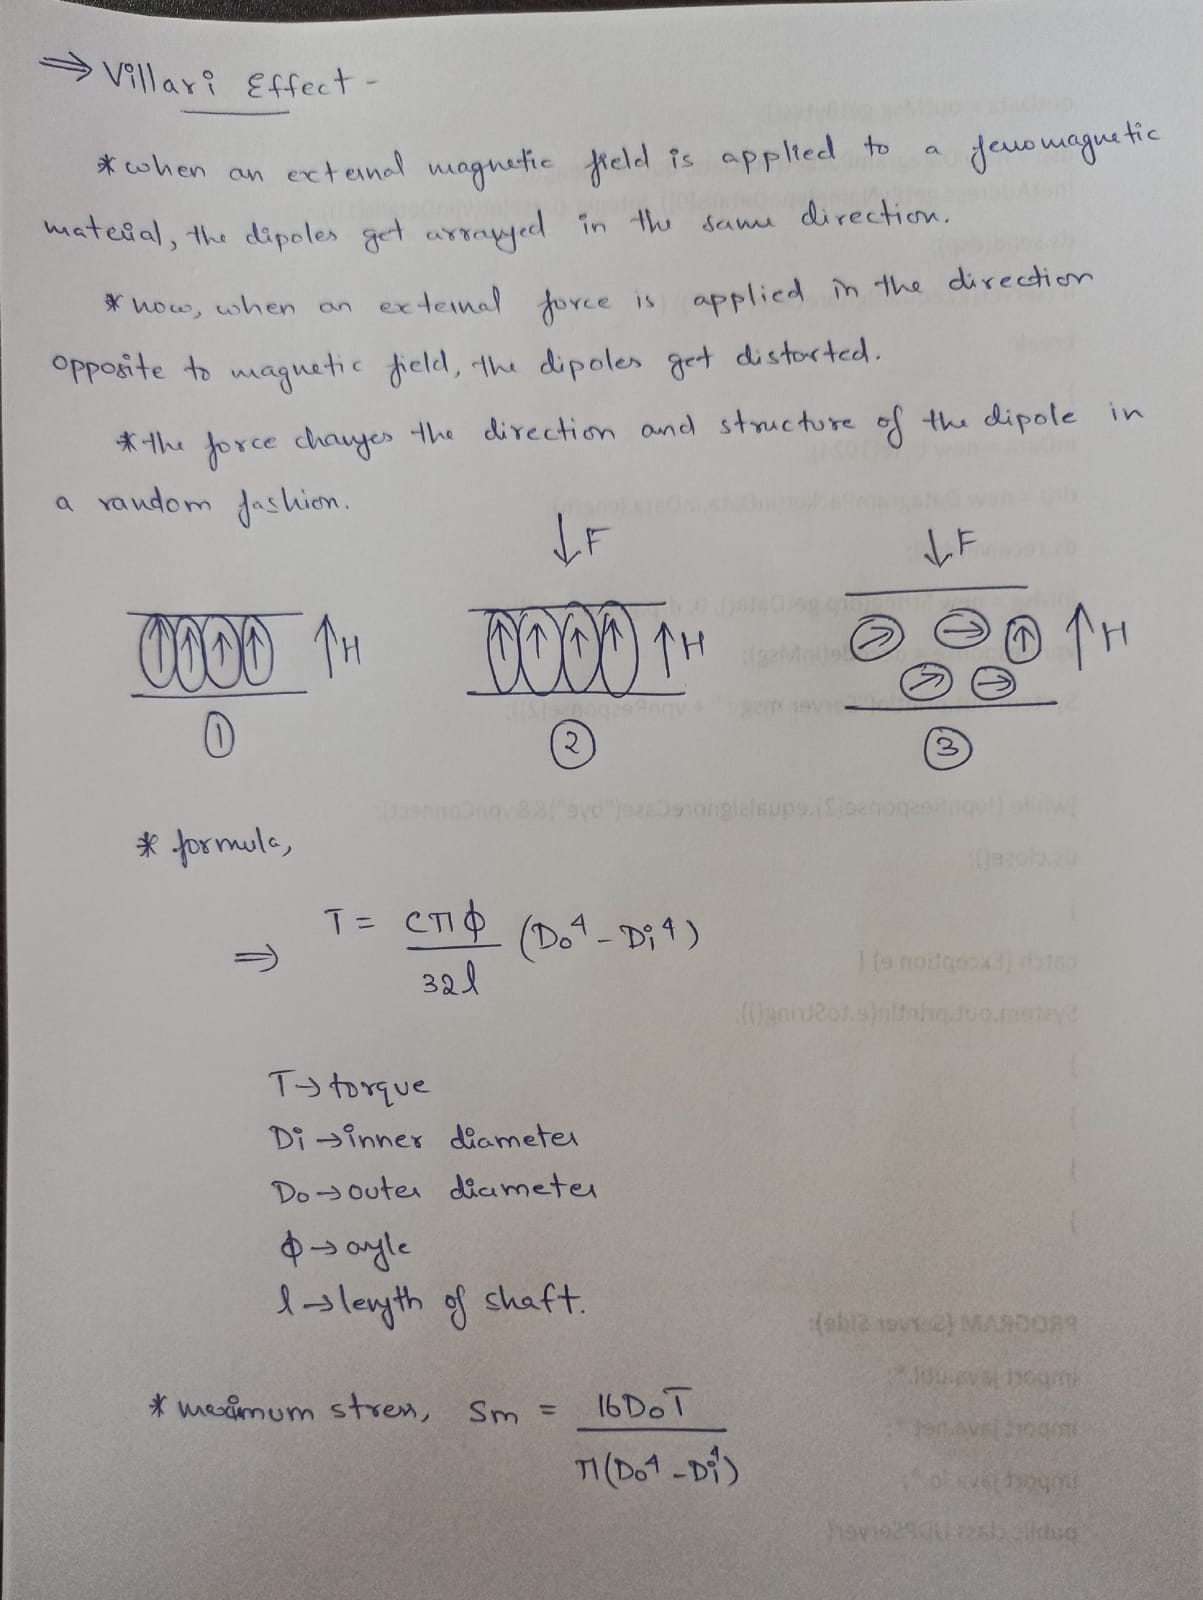 ⇒ Villari Effect -
* when an external magnetic field is applied to a ferromagnetic
material, the dipoles get arranged in the same direction.
* now, when an external force is applied in the direction
opposite to magnetic field, the dipoles get distorted.
* the force changes the direction and structure of the dipole in
a random fashion.
↓F ↓F
↑H ↑H ↑H
① ② ③
* formula,
⇒ T = CπΦ/32l (Do⁴ - Di⁴)
T → torque
Di → inner diameter
Do → outer diameter
Φ → angle
l → length of shaft.
* maximum stress, Sm = 16DoT/π(Do⁴ - Di⁴)